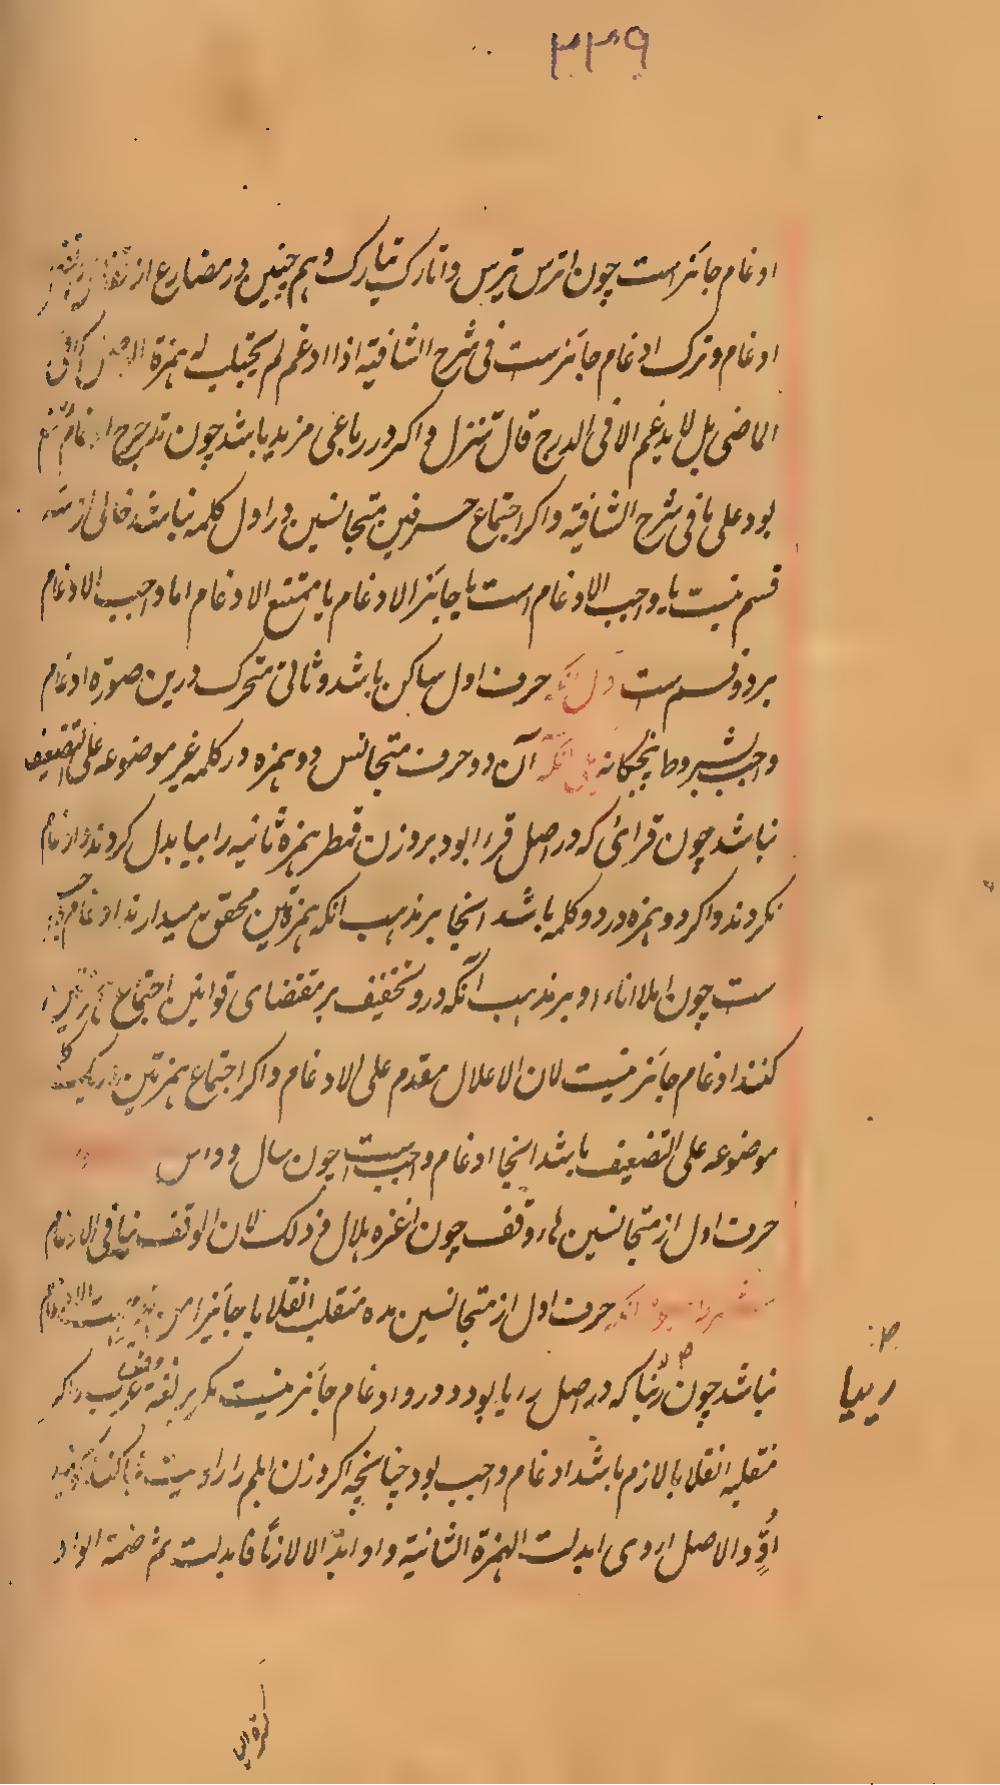 ۲۳۹
ادغام جائز است چون اترس تترس و اتارک تتارک و هم چنین در مضارع از
ادغام و ترک ادغام جائز ست فی شرح الشافیة اذا ادغم لم یجتلب له همزة
الماضی بل لا یدغم الا فی الدرج قال تنزل و اکر در رباعی مزید باشد چون تدحرج ادغام ممتنع
بود علی ما فی شرح الشافیة و اکر اجتماع حرفین متجانسین در اول کلمه نباشد خالی از سه
قسم نیست یا واجب الادغام است یا جائز الادغام یا ممتنع الادغام اما واجب الادغام
بر دو قسم ست اول انکه حرف اول ساکن باشد و ثانی متحرک درین صورة ادغام
واجب بشروط پنجکانه انکه آن دو حرف متجانس دو همزه در کلمه غیر موضوعه علی التضعیف
نباشد چون قرائ که در اصل قرءا بود بر وزن قمطر همزه ثانیه را بیا بدل کردند و ادغام
نکردند و اکر دو همزه در دو کلمه باشد اینجا بر مذهب انکه همزتین محقق میدارند ادغام
ست چون املا اناء او بر مذهب آنکه درو تخفیف بر مقتضای قوانین اجتماع
کنند ادغام جائز نیست لان الاعلال مقدم علی الادغام و اکر اجتماع همزتین در یک کلمه
موضوعه علی التضعیف باشد اینجا ادغام واجب است چون سال و داس
حرف اول از متجانسین هاء وقف چون اغزه هلال فرذلک لان الوقف ینافی الادغام
انکه حرف اول از متجانسین مده منقلب انقلابا جائزا
نباشد چون ریّیا که در اصل رءیا بود درو ادغام جائز نیست مکر بر لغة
منقلبه انقلابا لازم باشد ادغام واجب بود چنانچه اکر وزن ابلم را از
اوّ و الاصل اءوی ابدلت الهمزة الثانیة واوا ابدالا لازما فابدلت ثم ضمة الواو
ریییا